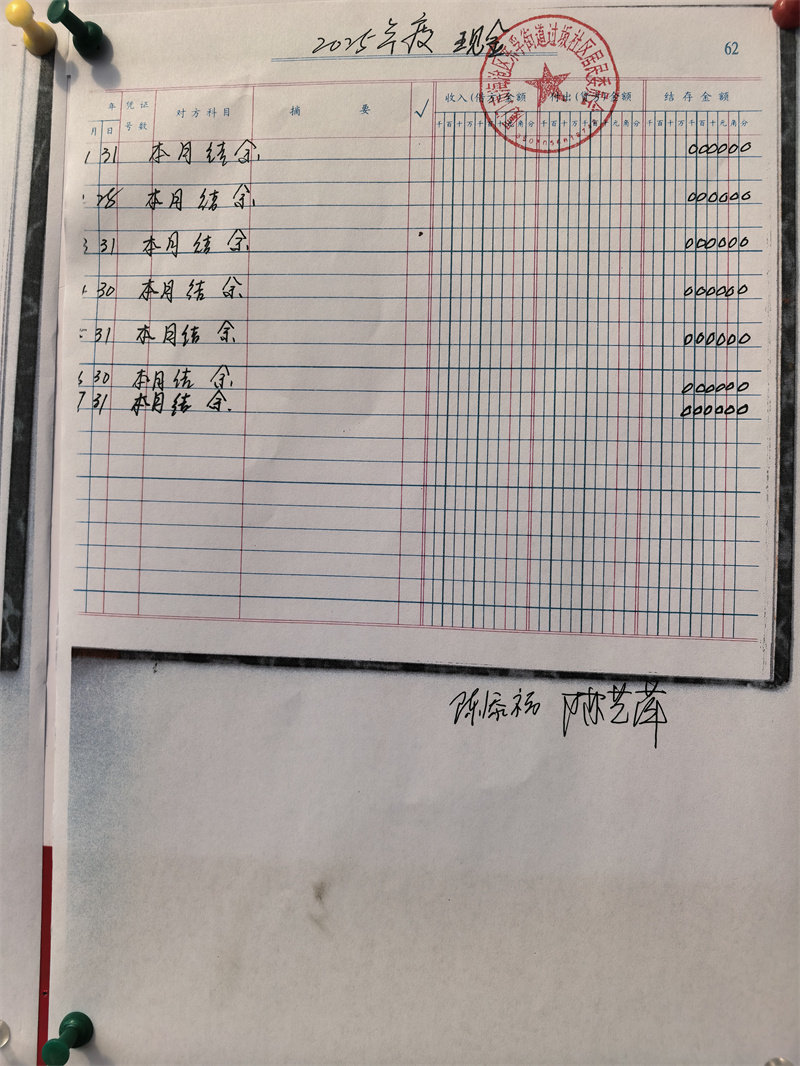 2025年度 现金
62
年 凭证 对方科目 摘要 √ 收入(借方)金额 付出(贷方)金额 结存金额
月 日 号数 千百十万千百十元角分 千百十万千百十元角分 千百十万千百十元角分
街道过坂社区居民委员会
1 31 本月结余 000000
25 本月结余 000000
3 31 本月结余 000000
30 本月结余 000000
31 本月结余 000000
30 本月结余 000000
7 31 本月结余 000000
陈添福